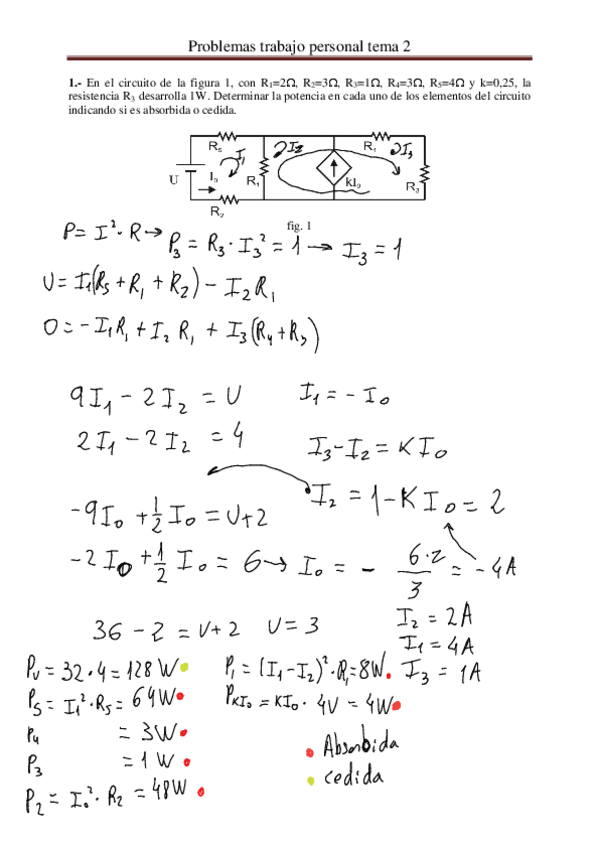 Problemas trabajo personal tema 2
1.- En el circuito de la figura 1, con R1=2Ω, R2=3Ω, R3=1Ω, R4=3Ω, R5=4Ω y k=0,25, la
resistencia R3 desarrolla 1W. Determinar la potencia en cada uno de los elementos del circuito
indicando si es absorbida o cedida.
R5 I1 2I2 R4 2I3
U Io R1 kIo R3
R2
fig. 1
P = I²·R → P3 = R3·I3² = 1 → I3 = 1
U = I1(R5 + R1 + R2) - I2R1
0 = - I1R1 + I2 R1 + I3(R4+R3)
9I1 - 2I2 = U I1 = - Io
2I1 - 2I2 = 4 I3 - I2 = KIo
I2 = 1 - KIo = 2
-9Io + 1/2 Io = U+2
-2Io + 1/2 Io = 6 → Io = - 6·2/3 = - 4A
I2 = 2A
36 - 2 = U + 2 U = 3 I1 = 4A
PU = 32·4 = 128 W P1 = (I1-I2)²·R1 = 8W I3 = 1A
P5 = I1²·R5 = 64W PKIo = KIo · 4V = 4W
P4 = 3W
Absorbida
P3 = 1W
cedida
P2 = Io²·R2 = 48W